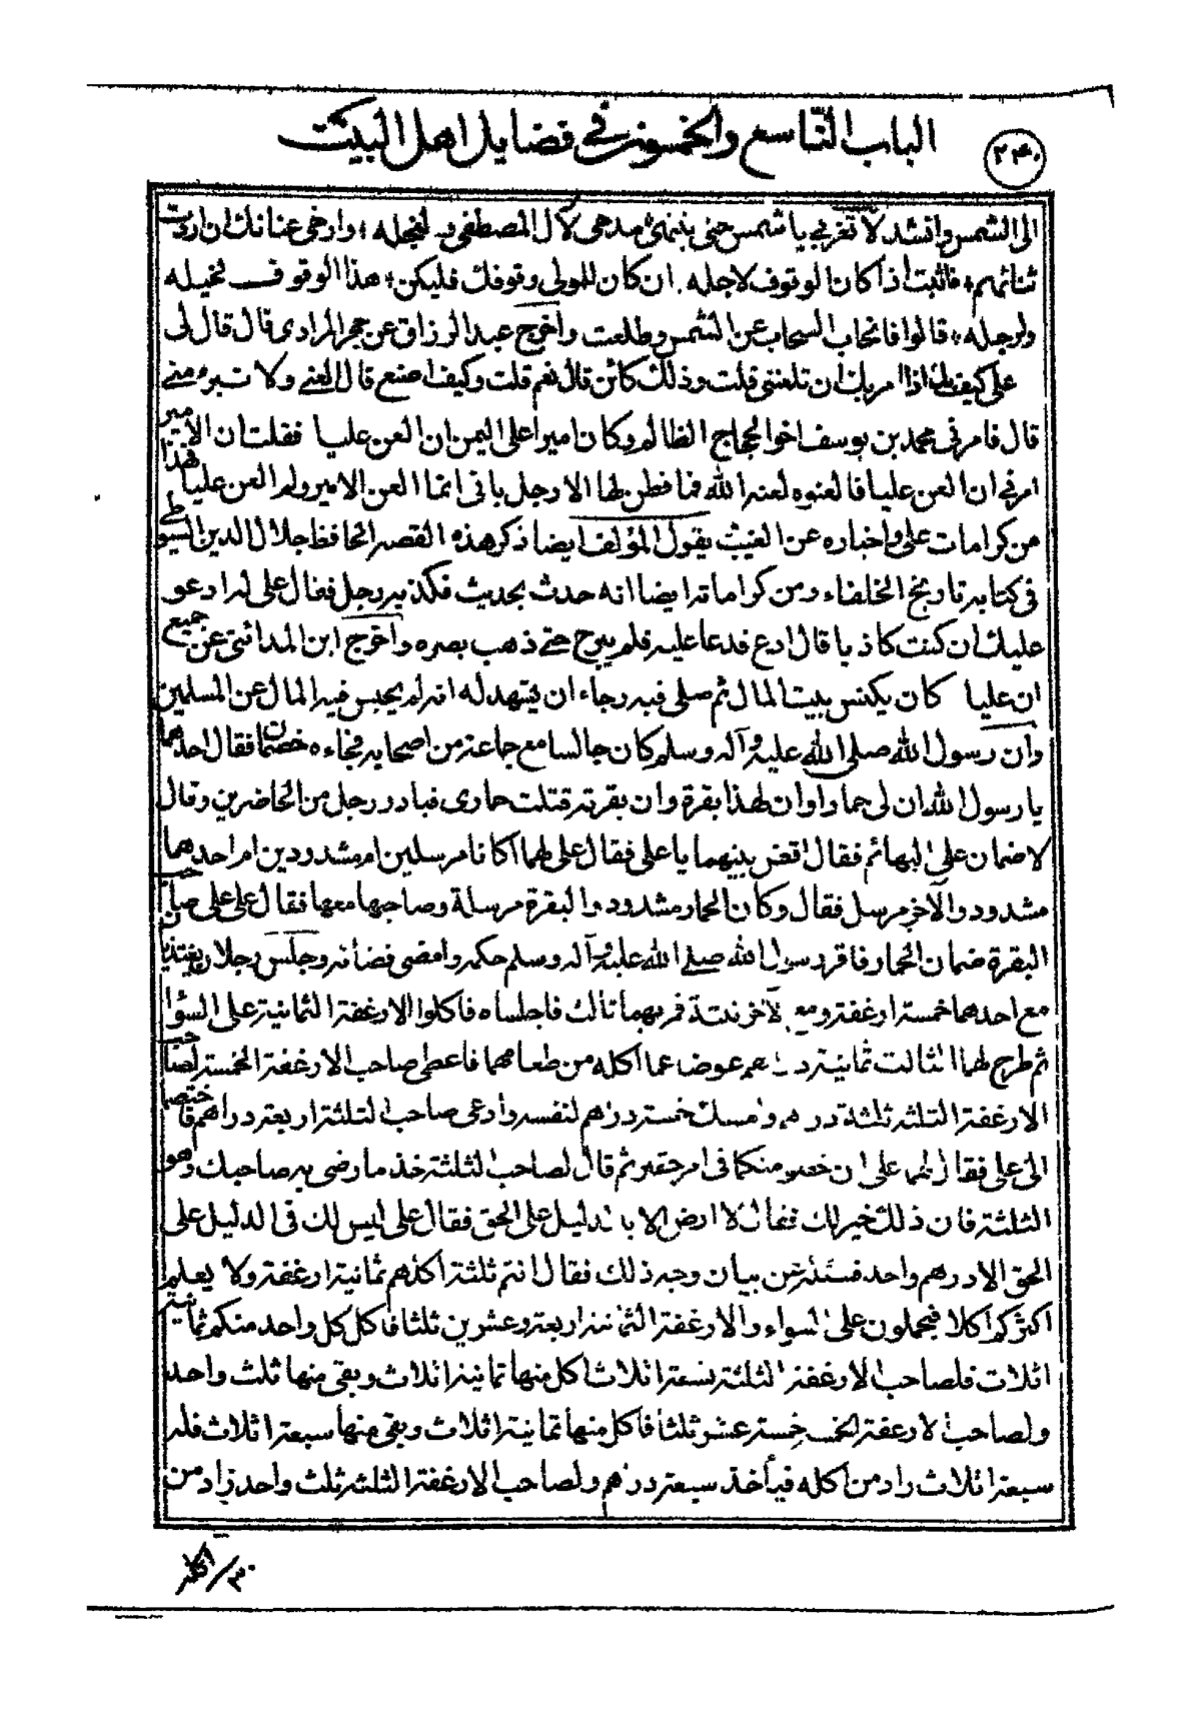 الباب التاسع والخمسون في فضايل اهل البيت
٢٤٠
الى الشمس وانشد لا تغربي يا شمس حتى ينتهي مدحي لآل المصطفى و لنجله ؛ وارخى عنانك ان اردت
ثنائهم ؛ فاثبت اذا كان الوقوف لاجله . ان كان للمولى وقوفك فليكن ؛ هذا الوقوف لخيله
ولرجله ؛ قالوا فانجاب السحاب عن الشمس وطلعت واخرج عبد الرزاق عن حجر المرادي قال قال لى
على كيف بك اذا امر بك ان تلعننى قلت وذلك كائن قال نعم قلت وكيف اصنع قال العنى ولا تبرء منى
قال فامرنى محمد بن يوسف اخو الحجاج الظالم وكان اميرا على اليمن ان العن عليا فقلت ان الامير
امرنى ان العن عليا فالعنوه لعنه الله فما فطن لها الا رجل يانى انما العن الامير ولم العن عليا فهذا
من كرامات على واخباره عن الغيب يقول المؤلف ايضا ذكر هذه القصه الحافظ جلال الدين السيوطى
فى كتابه تاريخ الخلفاء ومن كراماته ايضا انه حدث بحديث فكذبه رجل فقال على له ادعو
عليك ان كنت كاذبا قال ادع فدعا عليه فلم يبرح حتى ذهب بصره واخرج ابن المدائنى عن جميع
ان عليا كان يكنس بيت المال ثم صلى فيه رجاء ان يشهد له انه لم يحبس فيه المال عن المسلمين
وان رسول الله صلى الله عليه وآله وسلم كان جالسا مع جماعة من اصحابه فجاءه خصمان فقال احدهما
يا رسول الله ان لى حمارا وان لهذا بقرة وان بقرته قتلت حمارى فبادر رجل من الحاضرين وقال
لا ضمان على البهائم فقال اقض بينهما يا على فقال على لهما اكانا مرسلين ام مشدودين ام احدهما
مشدود والآخر مرسل فقال وكان الحمار مشدود والبقرة مرسلة وصاحبها معها فقال على على صاحب
البقرة ضمان الحمار فاقر رسول الله صلى الله عليه وآله وسلم حكمه وامضى قضائه وجلس رجلان يتغذيان
مع احدهما خمسة ارغفة ومع الآخر ثلثة فمر بهما ثالث فاجلساه فاكلوا الارغفة الثمانية على السواء
ثم طرح لهما الثالث ثمانية دراهم عوضا عما اكله من طعامهما فاعطى صاحب الارغفة الخمسة لصاحب
الارغفة الثلثة ثلثة درهم وامسك خمسة دراهم لنفسه وادعى صاحب الثلثة اربعة دراهم فاختصما
الى على فقال لهما على ان خصومتكما فى امر حقير ثم قال لصاحب الثلثة خذ ما رضى به صاحبك وهو
الثلثة فان ذلك خير لك فقال لا ارض الا بالدليل على الحق فقال على ليس لك فى الدليل على
الحق الا درهم واحد فسئله عن بيان وجه ذلك فقال انتم ثلثة اكلتم ثمانية ارغفة ولا يعلم
اكثركم اكلا فتحملون على السواء والارغفة الثمانية اربعة وعشرين ثلثا فاكل كل واحد منكم ثمانية
اثلاث فلصاحب الارغفة الثلثة تسعة اثلاث اكل منها ثمانية اثلاث وبقى منها ثلث واحد
ولصاحب الارغفة الخمسة خمسة عشر ثلثا فاكل منها ثمانية اثلاث وبقى منها سبعة اثلاث فله
سبعة اثلاث زاد من اكله فيأخذ سبعة دراهم ولصاحب الارغفة الثلثة ثلث واحد زاد من